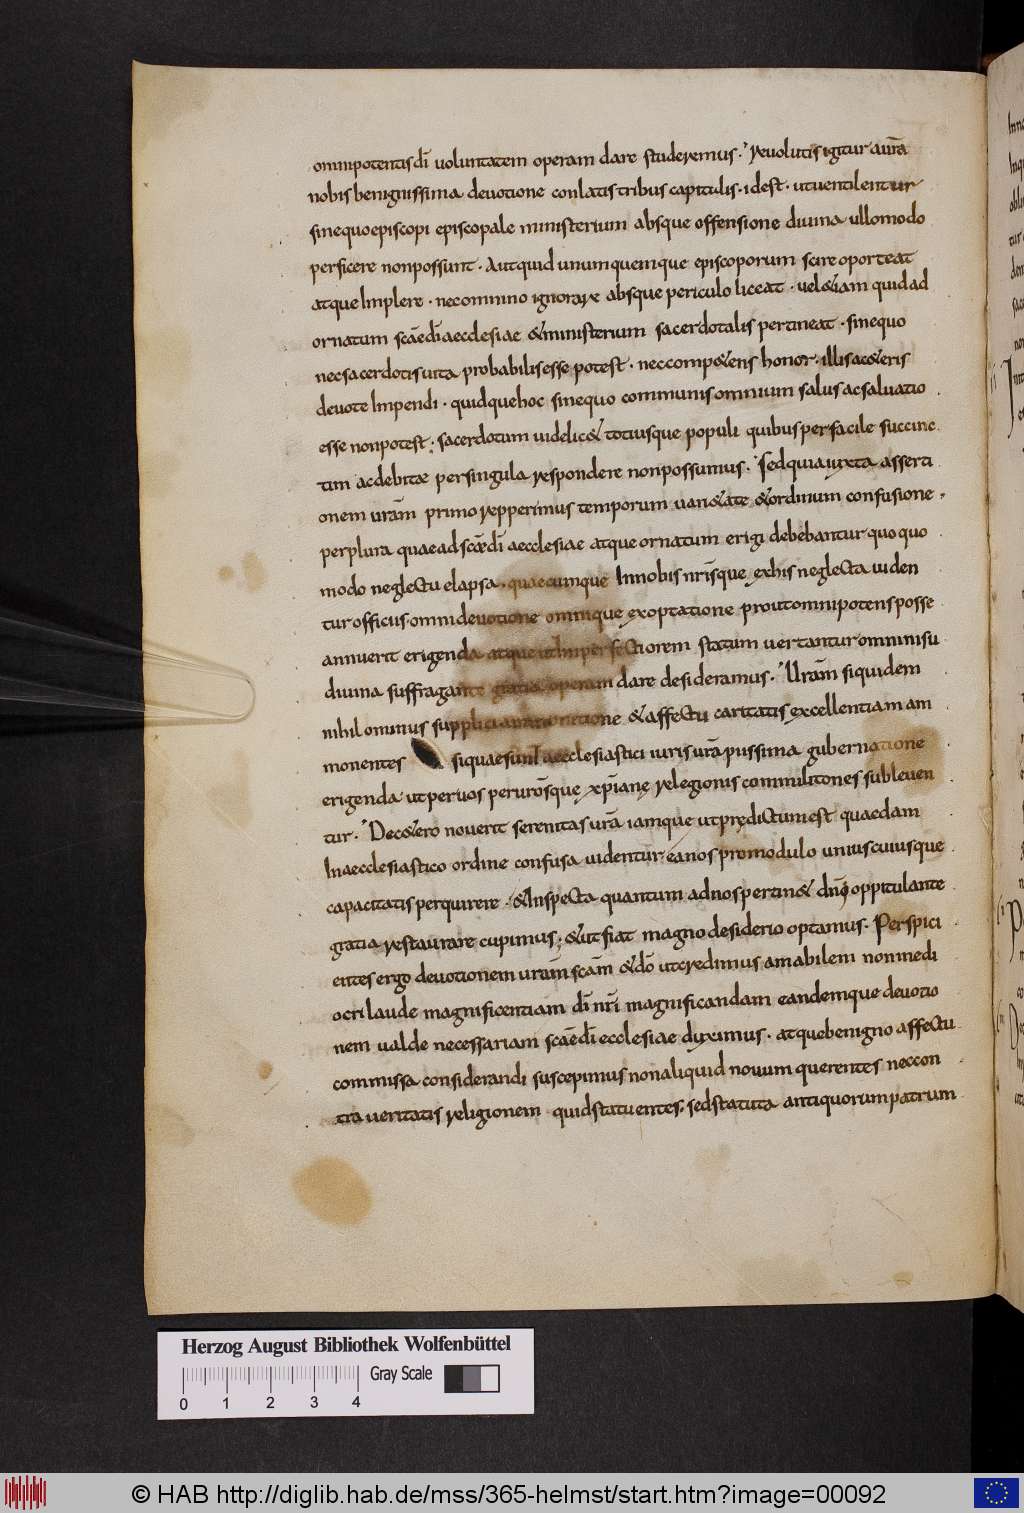 omnipotentis dī uoluntatem operam dare studeremus. Reuolutis igitur a ur̄a
nobis benignissima deuotione conlatis tribus capitulis. id est. ut uentilentur
sine quo episcopi episcopale ministerium absque offensione diuina ullomodo
perficere non possunt. Aut quid unumquemque episcoporum scire oporteat
atque Implere. nec omnino ignorare absque periculo liceat. uel &iam quid ad
ornatum scāe dī aecclesiae & ministerium sacerdotalis pertineat. sine quo
nec sacerdotis uita probabilis esse potest. nec comp&ens honor. illis ac&eris
deuote Impendi. quidque hoc sine quo communis omnium salus ac saluatio
esse non potest; sacerdotum uidelic& totiusque populi quibus perfacile succinc
tim ac debitae per singula respondere non possumus. Sed quia iuxta asserti
onem uram̄ primo repperimus temporum uari&ate & ordinum confusione
perplura quae ad scāe dī aecclesiae atque ornatum erigi debebantur quoquo
modo neglectu elapsa. quaecumque In nobis nr̄isque ex his neglecta uiden
tur officiis. omni deuotione omnique exoptatione prout omnipotens posse
annuerit erigenda atque ad Imperfectiorem statum uertantur omni nisu
diuina suffragante gratia operam dare desideramus. Uram̄ siquidem
nihilominus supplici ammonitione & affectu caritatis excellentiam am
monentes si quae sunt aecclesiastici iuris ur̄a piissima gubernatione
erigenda ut per uos per urōsque xp̄iane relegionis commilitones subleuen
tur. Dec&ero nouerit serenitas ur̄a iamque ut prędictum est quaedam
In aecclesiastico ordine confusa uidentur ea nos pro modulo uniuscuiusque
capacitatis perquirere. & Inspecta quantum ad nos pertin& dn̄o oppitulante
gratia restaurare cupimus; & ut fiat magno desiderio optamus. Perspici
entes ergo deuotionem uram̄ scam̄ & dō ut credimus amabilem non medi
ocri laude magnificentiam dī nr̄i magnificandam eandemque deuotio
nem ualde necessariam scāe dī ecclesiae diximus. atque benigno affectu
commissa considerandi suscepimus non aliquid nouum querentes nec con
tra ueritatis religionem quid statuentes; sed statuta antiquorum patrum
Herzog August Bibliothek Wolfenbüttel
Gray Scale
0 1 2 3 4
© HAB http://diglib.hab.de/mss/365-helmst/start.htm?image=00092